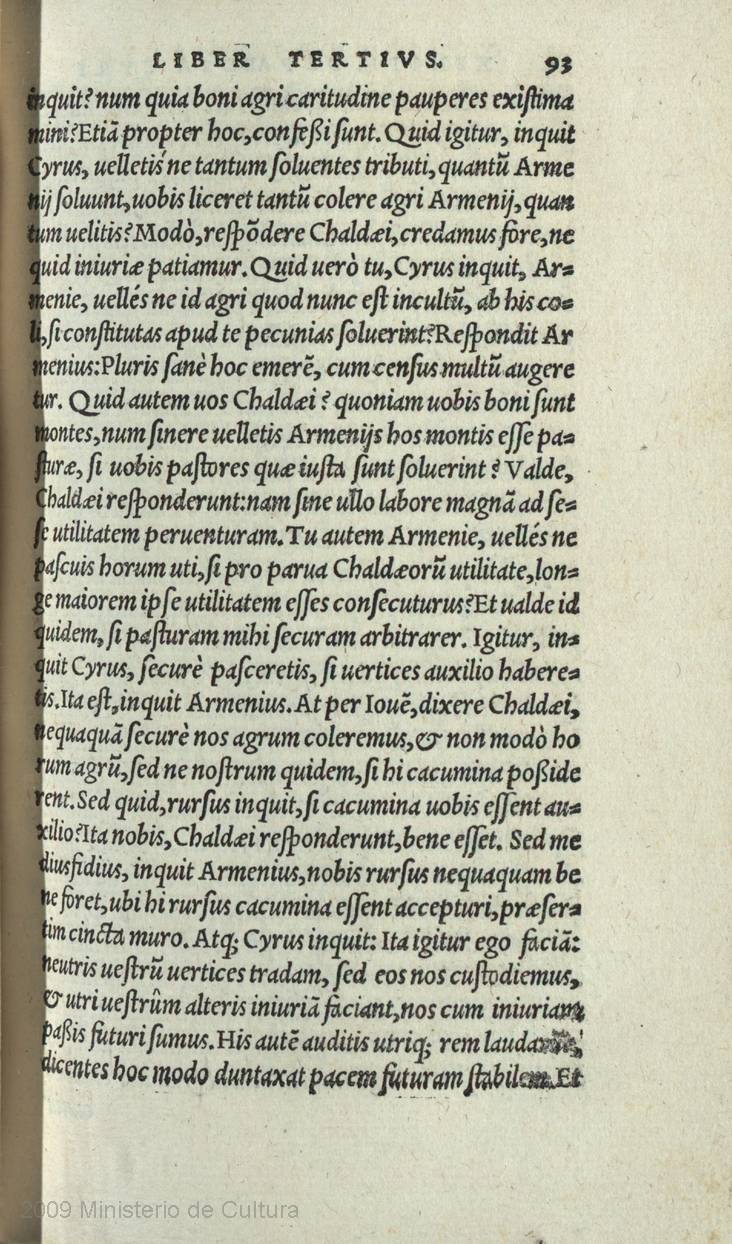 LIBER TERTIVS. 93
inquit? num quia boni agri caritudine pauperes existima
mini? Etiā propter hoc, confeßi sunt. Quid igitur, inquit
Cyrus, uelletis ne tantum soluentes tributi, quantū Arme
nij soluunt, uobis liceret tantū colere agri Armenij, quan
tum uelitis? Modò, respōdere Chaldæi, credamus fore, ne
quid iniuriæ patiamur. Quid uerò tu, Cyrus inquit, Ar=
menie, uellés ne id agri quod nunc est incultū, ab his co=
li, si constitutas apud te pecunias soluerint? Respondit Ar
menius: Pluris sanè hoc emerē, cum census multū augere
tur. Quid autem uos Chaldæi? quoniam uobis boni sunt
montes, num sinere uelletis Armenijs hos montis esse pa=
sturæ, si uobis pastores quæ iusta sunt soluerint? Valde,
Chaldæi responderunt: nam sine ullo labore magnā ad se=
se utilitatem peruenturam. Tu autem Armenie, uellés ne
pascuis horum uti, si pro parua Chaldæorū utilitate, lon=
ge maiorem ipse utilitatem esses consecuturus? Et ualde id
quidem, si pasturam mihi securam arbitrarer. Igitur, in=
quit Cyrus, securè pasceretis, si uertices auxilio habere=
tis. Ita est, inquit Armenius. At per Iouē, dixere Chaldæi,
nequaquā securè nos agrum coleremus, & non modò ho
rum agrū, sed ne nostrum quidem, si hi cacumina poßide
rent. Sed quid, rursus inquit, si cacumina uobis essent au=
xilio? Ita nobis, Chaldæi responderunt, bene esset. Sed me
diusfidius, inquit Armenius, nobis rursus nequaquam be
ne foret, ubi hi rursus cacumina essent accepturi, præser=
tim cincta muro. Atq; Cyrus inquit: Ita igitur ego faciā:
neutris uestrū uertices tradam, sed eos nos custodiemus,
& utri uestrûm alteris iniuriā faciant, nos cum iniuriam
paßis futuri sumus. His autē auditis utriq; rem
dicentes hoc modo duntaxat pacem futuram stabilem. Et
2009 Ministerio de Cultura